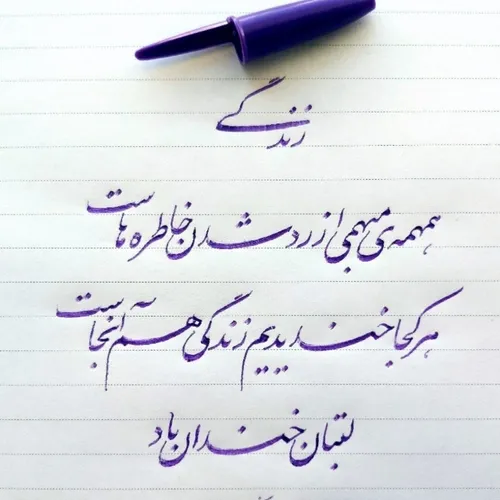 زندگی
همهمه‌ی مبهمی از رد شدن خاطره هاست
هر کجا خندیدیم زندگی هم آنجاست
لبتان خندان باد